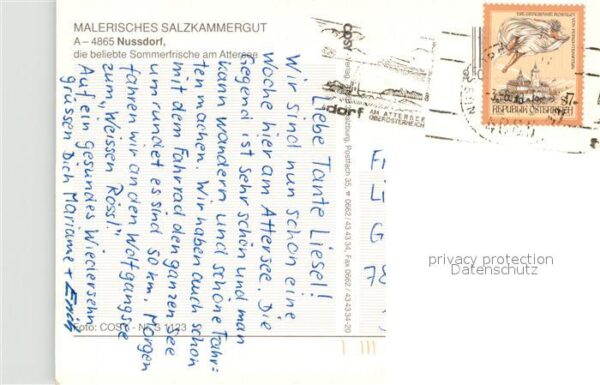 MALERISCHES SALZKAMMERGUT
A – 4865 Nussdorf,
die beliebte Sommerfrische am Attersee
Liebe Tante Liesel!
Wir sind nun schon eine
Woche hier am Attersee. Die
Gegend ist sehr schön und man
kann wandern und schöne Fahr-
ten machen. Wir haben auch schon
mit dem Fahrrad den ganzen See
umrundet es sind 50 km. Morgen
fahren wir an den Wolfgangsee
zum "Weissen Rössl".
Auf ein gesundes Wiedersehn
grüssen Dich Mariame + Erich
Foto: COSY - NUS 1123
Postfach 35, 0662/43 43 34, Fax 0662/43 43 34-20
COSY
dorf
AM ATTERSEE
OBERÖSTERREICH
S7.-
REPUBLIK ÖSTERREICH
privacy protection
Datenschutz